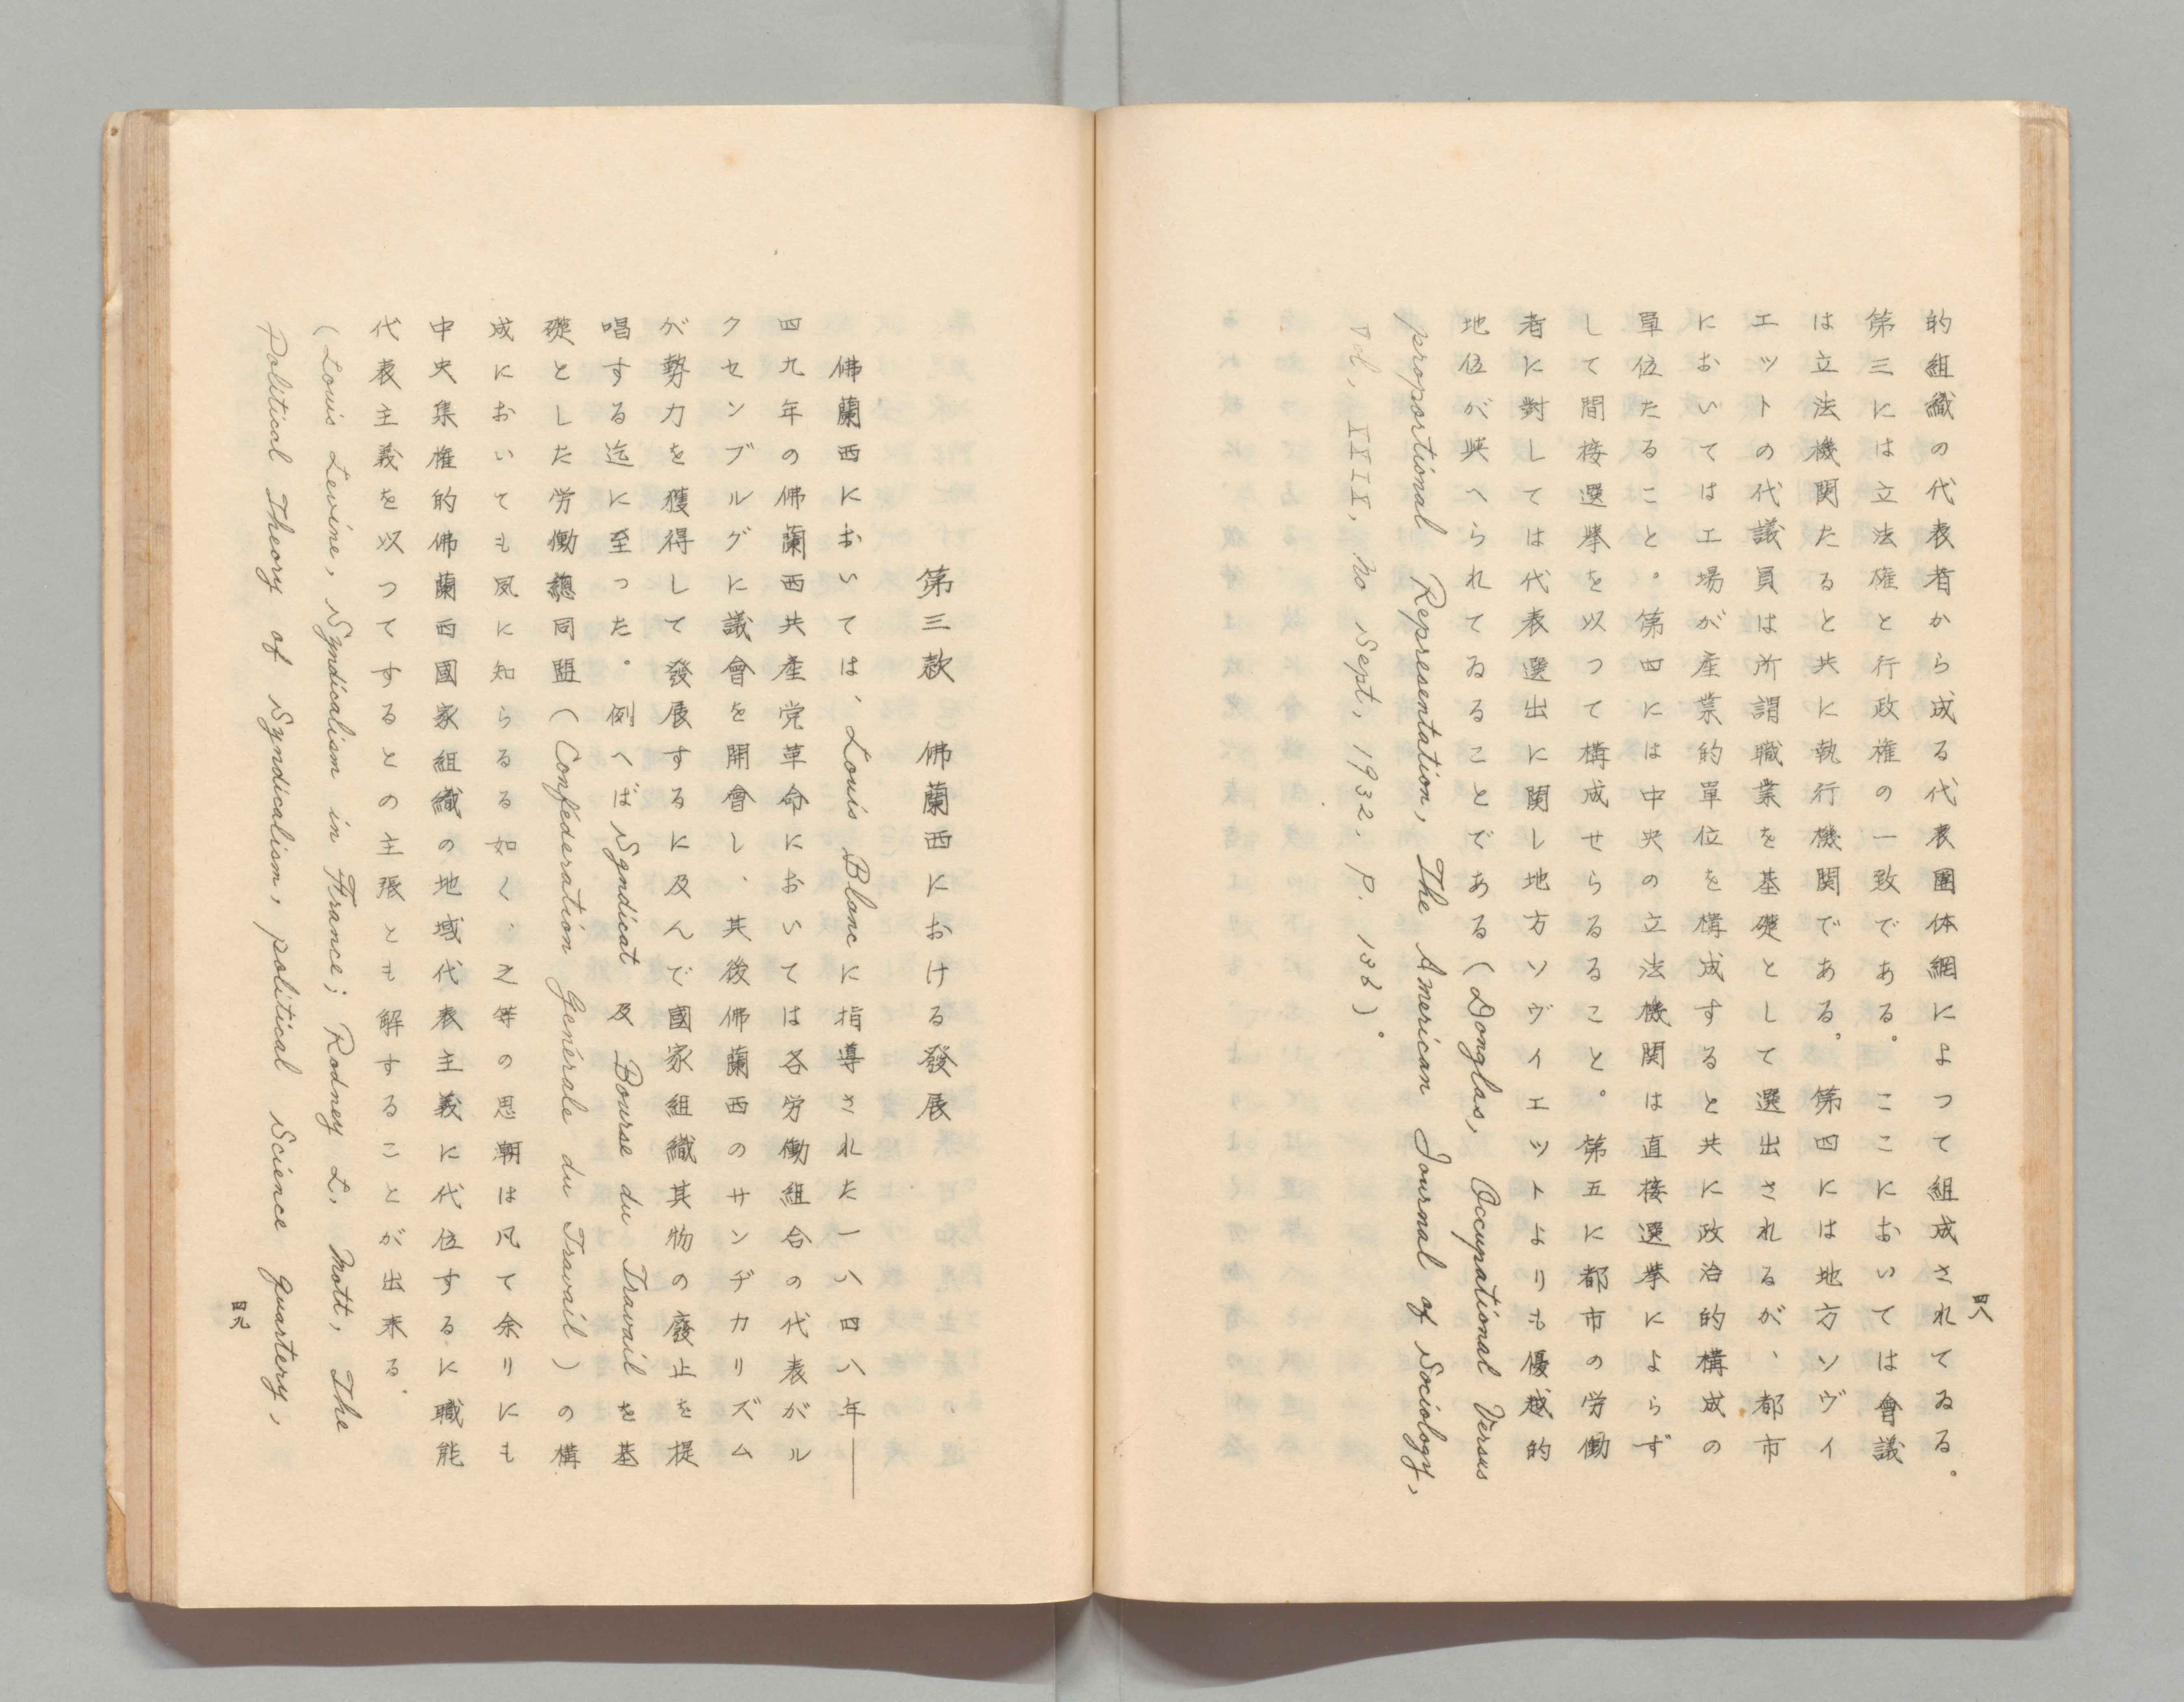 的組織の代表者から成る代表團体網によつて組成されてゐる。
第三には立法権と行政権の一致である。ここにおいては會議
は立法機関たると共に執行機関である。第四には地方ソヴイ
エツトの代議員は所謂職業を基礎として選出されるが、都市
においては工場が産業的單位を構成すると共に政治的構成の
單位たること。第四には中央の立法機関は直接選挙によらず
して間接選挙を以つて構成せらるること。第五に都市の労働
者に對しては代表選出に関し地方ソヴイエツトよりも優越的
地位が與へられてゐることである(Donglas, Occupational Versus
proportional Representation, The American Journal of Sociology,
Vol, IIII, No Sept, 1932, P. 138)。
四八
第三款 佛蘭西における發展
佛蘭西においては、Louis Blanc に指導された一八四八年——
四九年の佛蘭西共産党革命においては各労働組合の代表がル
クセンブルグに議會を開會し、其後佛蘭西のサンヂカリズム
が勢力を獲得して發展するに及んで國家組織其物の廢止を提
唱する迄に至つた。例へば Syndicat 及 Bourse du Travail を基
礎とした労働總同盟(Confédération Générale du Travail)の構
成においても夙に知らるる如く、之等の思潮は凡て余りにも
中央集権的佛蘭西國家組織の地域代表主義に代位するに職能
代表主義を以つてするとの主張とも解することが出来る.
(Louis Levine, Syndicalism in France; Rodney L. Mott, The
Political Theory of Syndicalism, political Science quartery,
四九